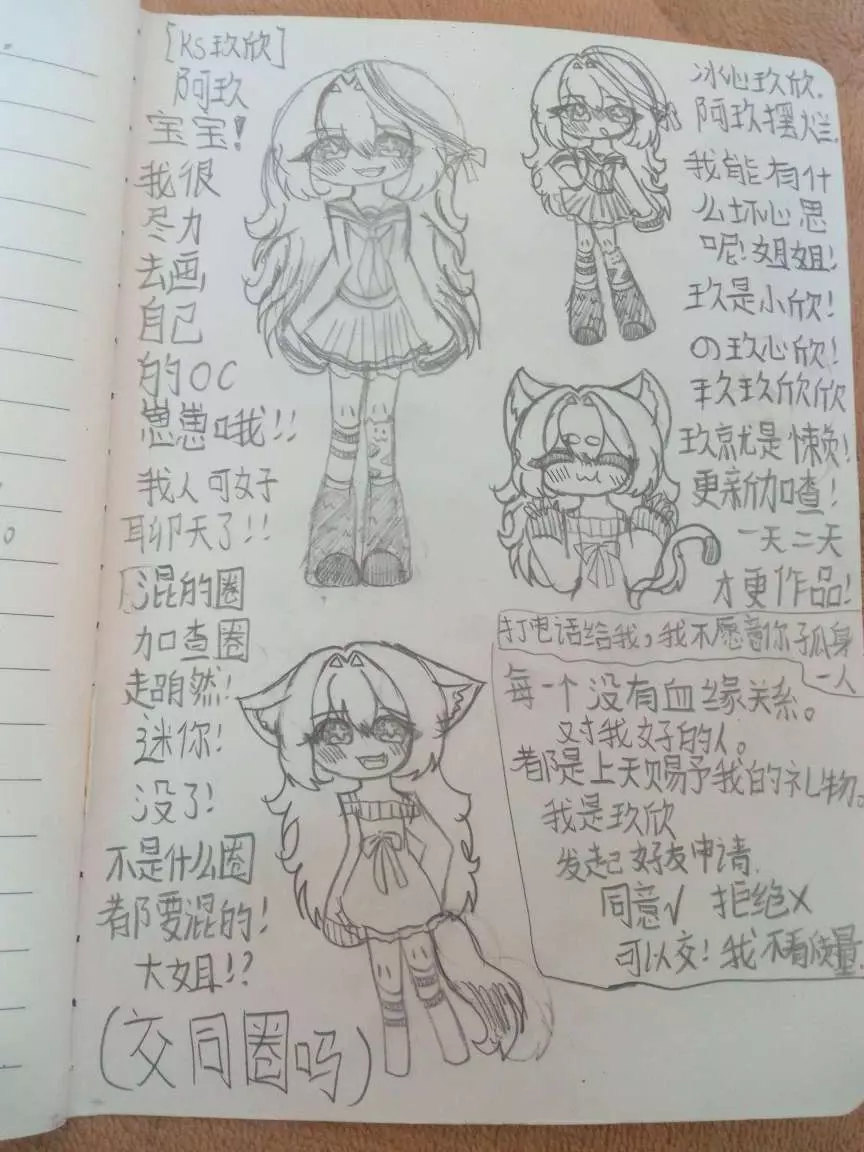 [KS玖欣]
阿玖
宝宝!
我很
尽力
去画
自己
的OC
崽崽哦!!
我人可好
聊天了!!
混的圈
加查圈
超萌然!
迷你!
没了!
不是什么圈
都要混的!
大姐!?
(交同圈吗)
冰心玖欣.
阿玖摆烂.
我能有什
么坏心思
呢!姐姐!
玖是小欣!
の玖心欣!
玖玖欣欣
玖就是懒负!
更新加查!
一天二天
才更作品!
打电话给我,我不愿意你孤身
一人
每一个没有血缘关系。
对我好的人。
都是上天赐予我的礼物。
我是玖欣
发起好友申请.
同意√ 拒绝×
可以交!我不看质量.